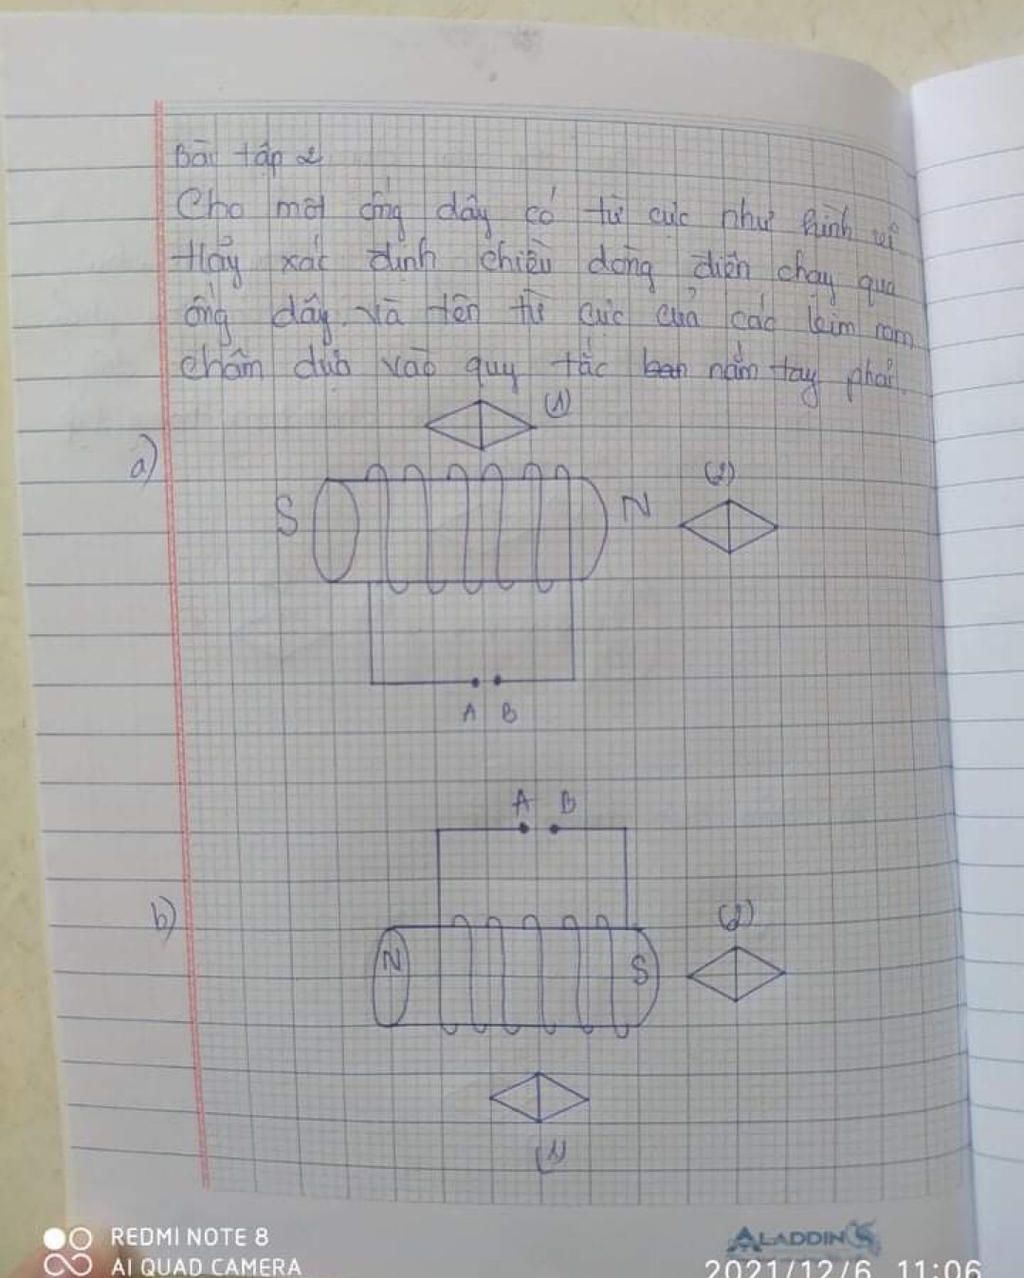 Bài tập 2
Cho một ống dây có từ cực như hình vẽ
Hãy xác định chiều dòng điện chạy qua
ống dây và tên từ cực của các kim nam
châm dựa vào quy tắc nắm tay phải.
(1)
a)
(2)
S
N
A B
A B
b)
(2)
N
S
(1)
REDMI NOTE 8
AI QUAD CAMERA
ALADDIN
2021/12/6 11:06